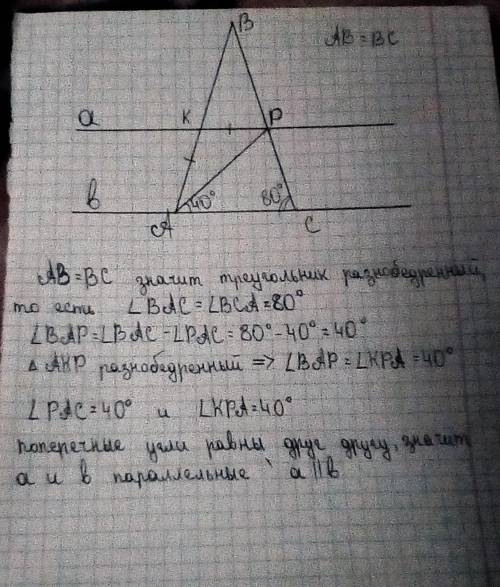 B
AB = BC
a K P
в 40° 80°
A C
AB = BC значит треугольник разнобедренный,
то есть ∠BAC = ∠BCA = 80°
∠BAP = ∠BAC - ∠PAC = 80° - 40° = 40°
Δ AKP разнобедренный => ∠BAP = ∠KPA = 40°
∠PAC = 40° и ∠KPA = 40°
поперечные угли равны друг другу, значит
a и в параллельные a || в